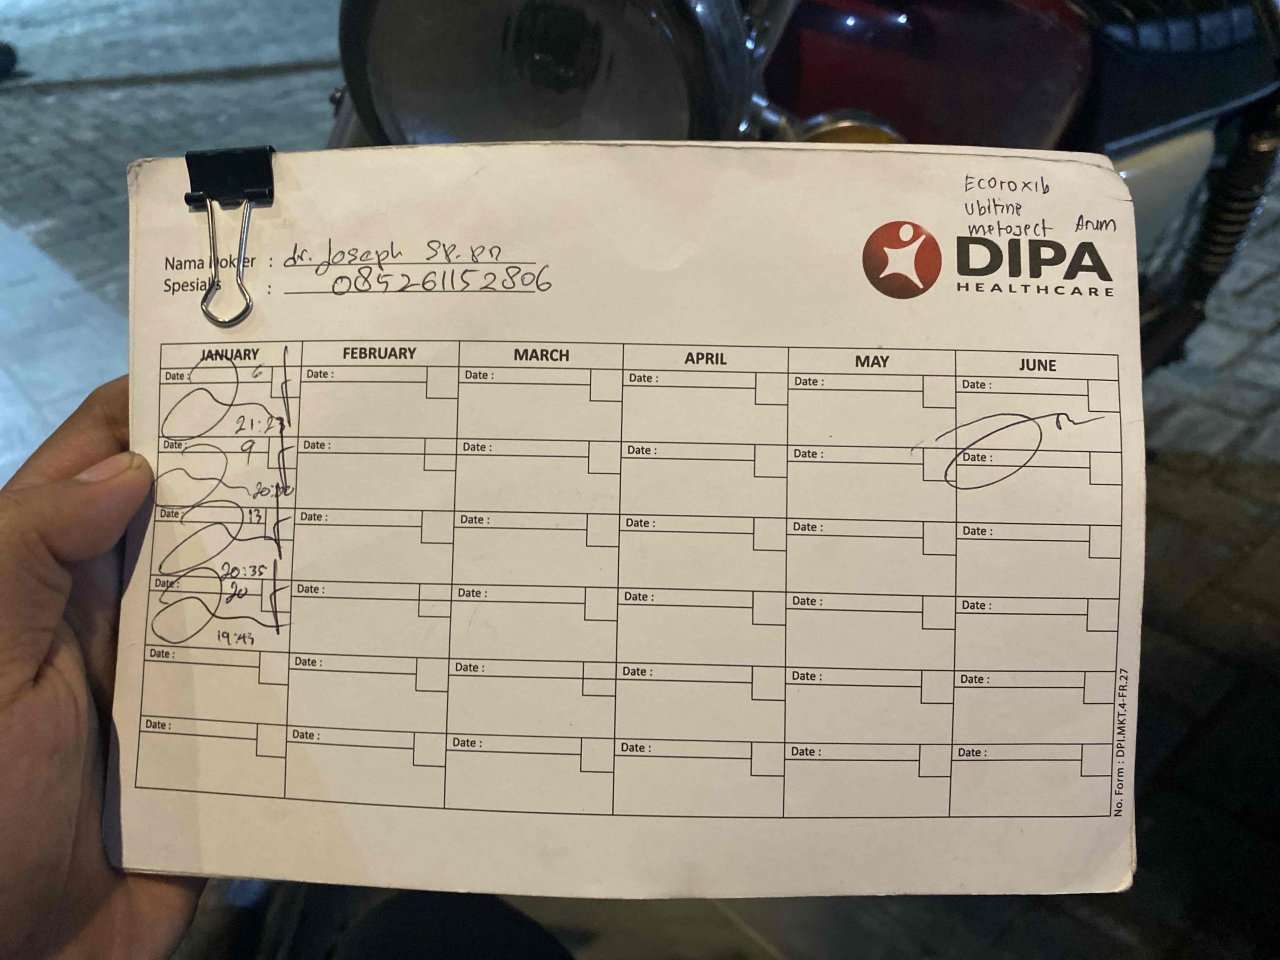 Ecoroxib
Ubitine
metoject Anum
DIPA
HEALTHCARE
Nama Dokter : dr. Joseph SP.PD
Spesialis : 085261152806
JANUARY FEBRUARY MARCH APRIL MAY JUNE
Date : 6 Date : Date : Date : Date : Date :
21:23
Date : 9 Date : Date : Date : Date : Date :
20:00
Date : 13 Date : Date : Date : Date : Date :
20:35
Date : 20 Date : Date : Date : Date : Date :
19:43
Date : Date : Date : Date : Date : Date :
Date : Date : Date : Date : Date : Date :
No. Form : DPI.MKT.4-FR.27